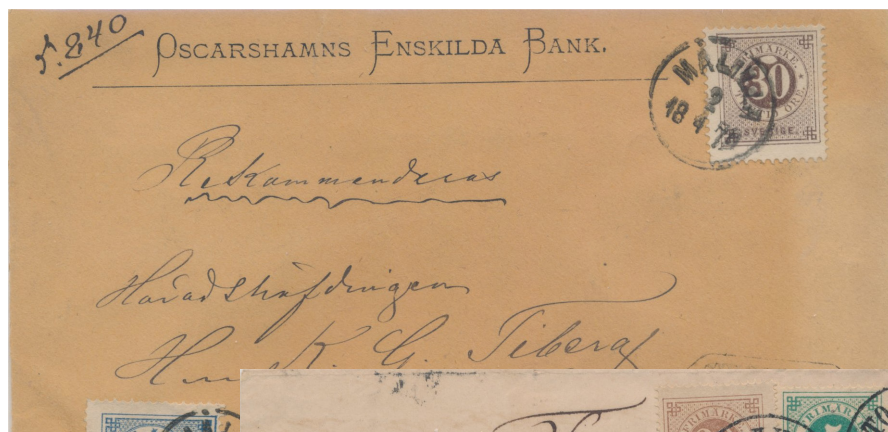 N. 840
OSCARSHAMNS ENSKILDA BANK.
FRIMÄRKE.
30
TRETTIO ÖRE.
SVERIGE.
MALMÖ
2
18 4 78
Rekommenderas
Häradshöfdingen
H K. G. Tiberg
FRIMÄRKE
FRIMÄRKE